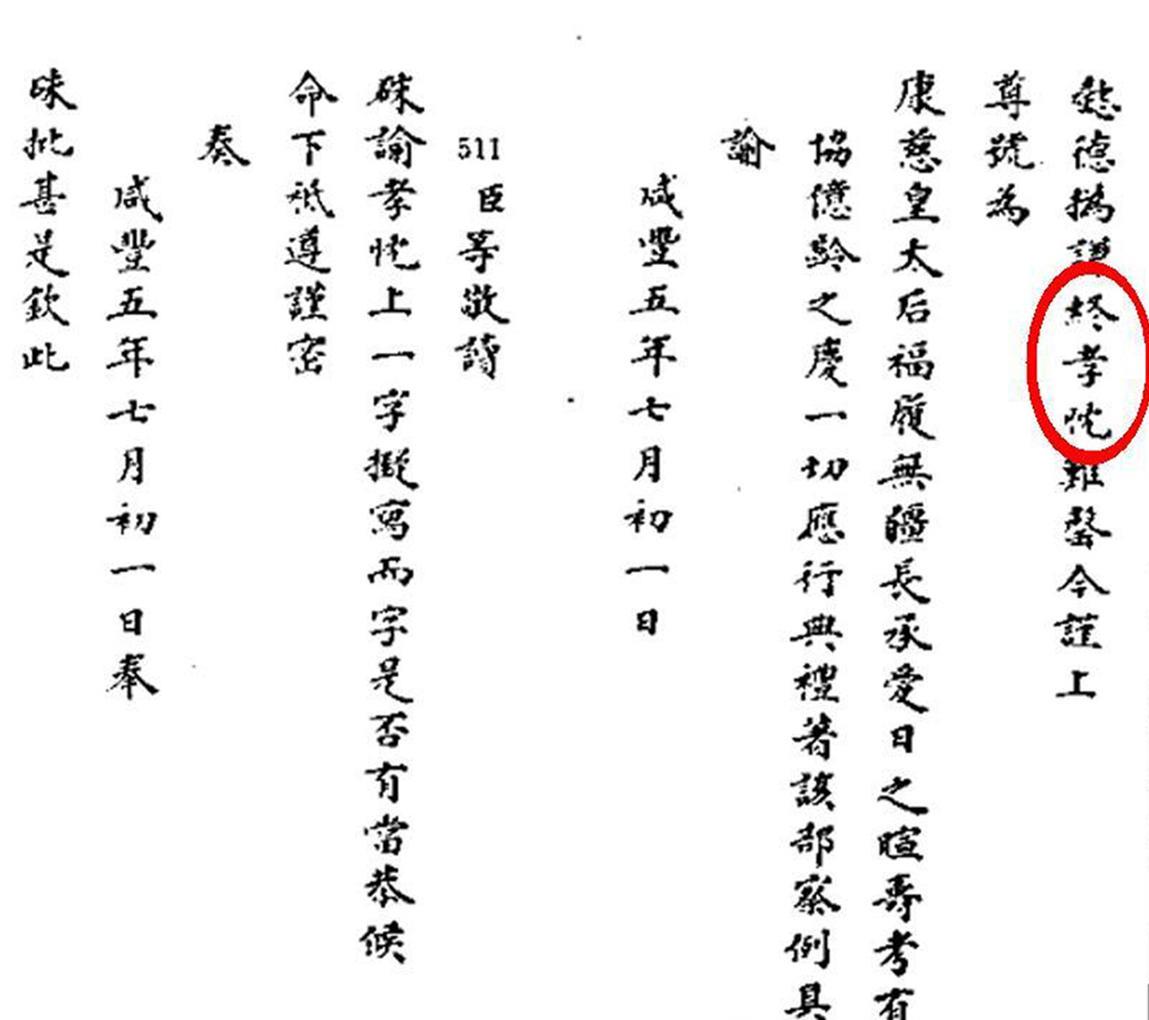 懿德撝謙終孝忱難罄今謹上
尊號為
康慈皇太后福履無疆長承愛日之暄壽考有
協億齡之慶一切應行典禮著該部察例具
諭
咸豐五年七月初一日
511 臣等敬讀
硃諭孝忱上一字擬寫而字是否有當恭候
命下祗遵謹密
奏
咸豐五年七月初一日奉
硃批甚是欽此